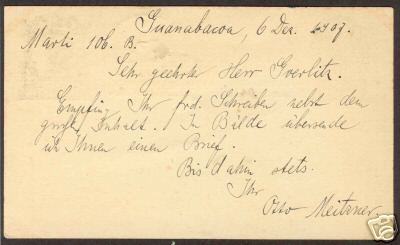 Guanabacoa, 6 Dez. 1907.
Marti 106. B.-
Sehr geehrter Herr Goerlitz.
Empfing Ihr frd. Schreiben nebst dem
Inhalt. In Bälde übersende
ich Ihnen einen Brief.
Bis dahin stets
Ihr
Otto Meitzner